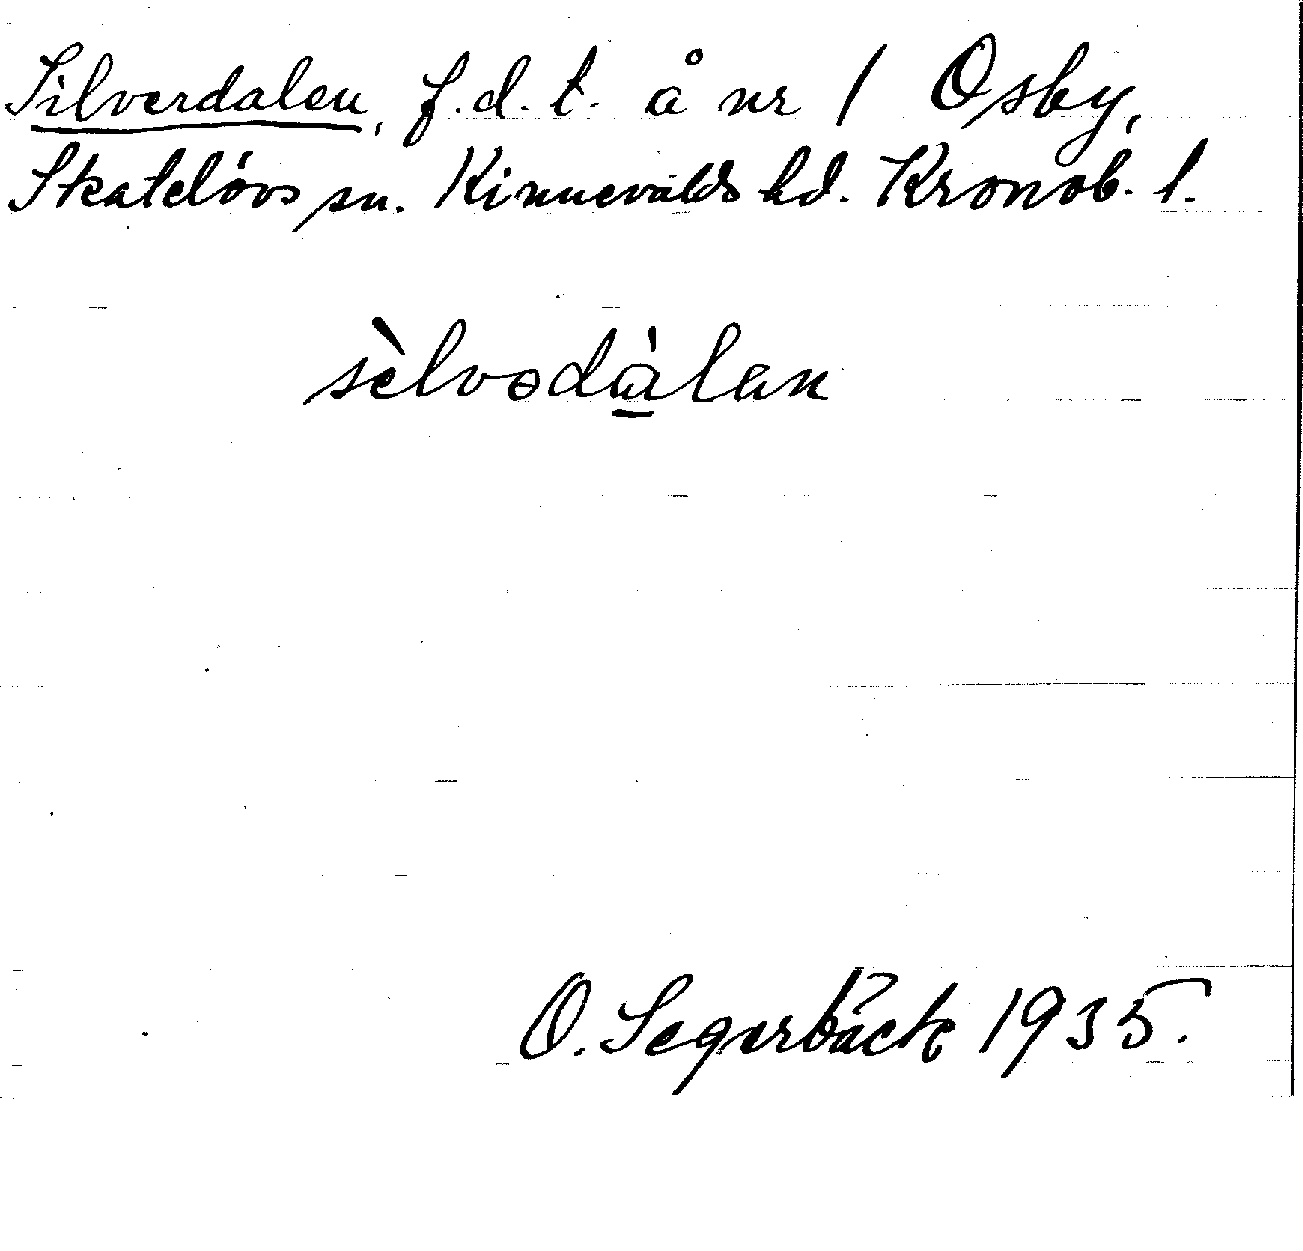 Silverdalen, f.d.t. å nr 1 Osby,
Skatelövs sn. Kinnevalds hd. Kronob. l.
sèlvɘdàlan
O. Segerbäck 1935.